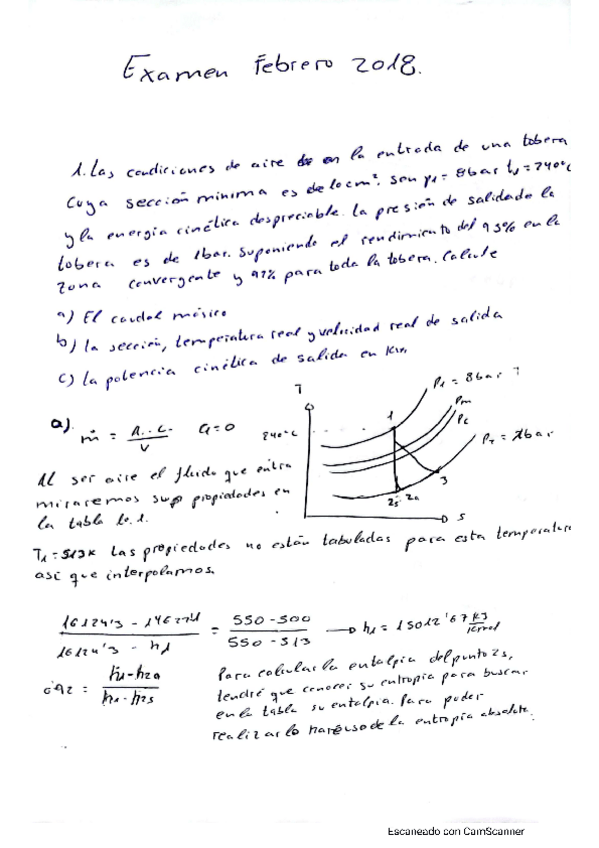 Examen Febrero 2018.
1. Las condiciones de aire en la entrada de una tobera
cuya sección mínima es de 10 cm². son p1 = 8bar t1 = 240°C
y la energía cinética despreciable. La presión de salida de la
tobera es de 1bar. Suponiendo el rendimiento del 93% en la
zona convergente y 92% para toda la tobera. Calcule
a) El caudal másico
b) la sección, temperatura real y velocidad real de salida
c) la potencia cinética de salida en Kw.
a). ṁ = A · C / V C1 = 0
Al ser aire el fluido que entra
miraremos sus propiedades en
la tabla 10.1.
T
240°C
1
P1 = 8bar
Pm
Pc
2s 2a
3
S
T1 = 513K Las propiedades no están tabuladas para esta temperatura
así que interpolamos.
16124'3 - h1 = 550 - 500 / 550 - 513 → h1 = 15012'67 KJ/Kmol
0'92 = h1 - h2a / h1 - h2s
Para calcular la entalpía del punto 2s,
tendré que conocer su entropía para buscar
en la tabla su entalpía. Para poder
realizarlo haré uso de la entropía absoluta.
Escaneado con CamScanner